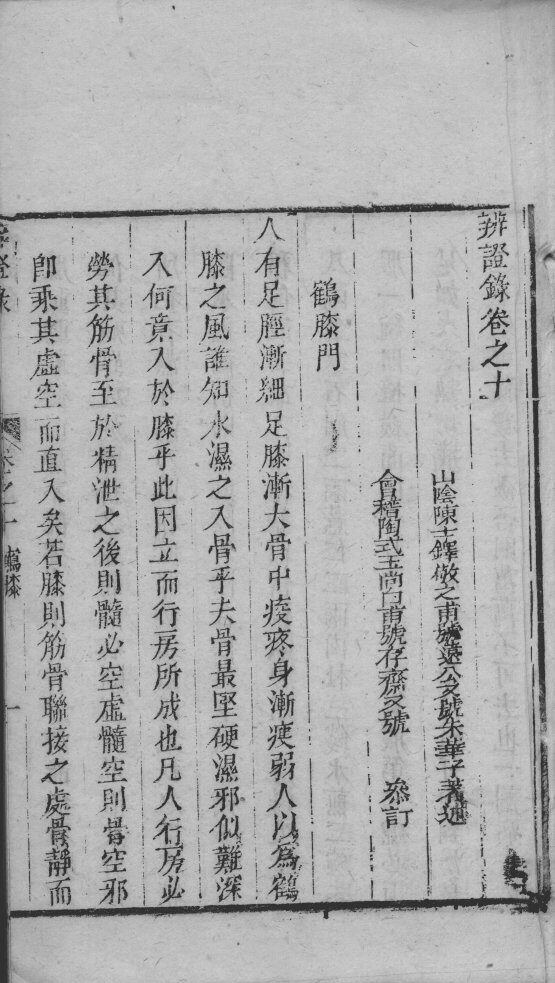 辨證錄卷之十
山陰陳士鐸敬之甫號遠公又號朱華子著述
會稽陶式玉尚白甫號存齋又號 叅訂
鶴膝門
人有足脛漸細足膝漸大骨中痠疼身漸瘦弱人以為鶴
膝之風誰知水濕之入骨乎夫骨最堅硬濕邪似難深
入何竟入於膝乎此因立而行房所成也凡人行房必
勞其筋骨至於精泄之後則髓必空虛髓空則骨空邪
卽乘其虛空而直入矣若膝則筋骨聯接之處骨靜而
證錄
卷之十 鶴膝 一